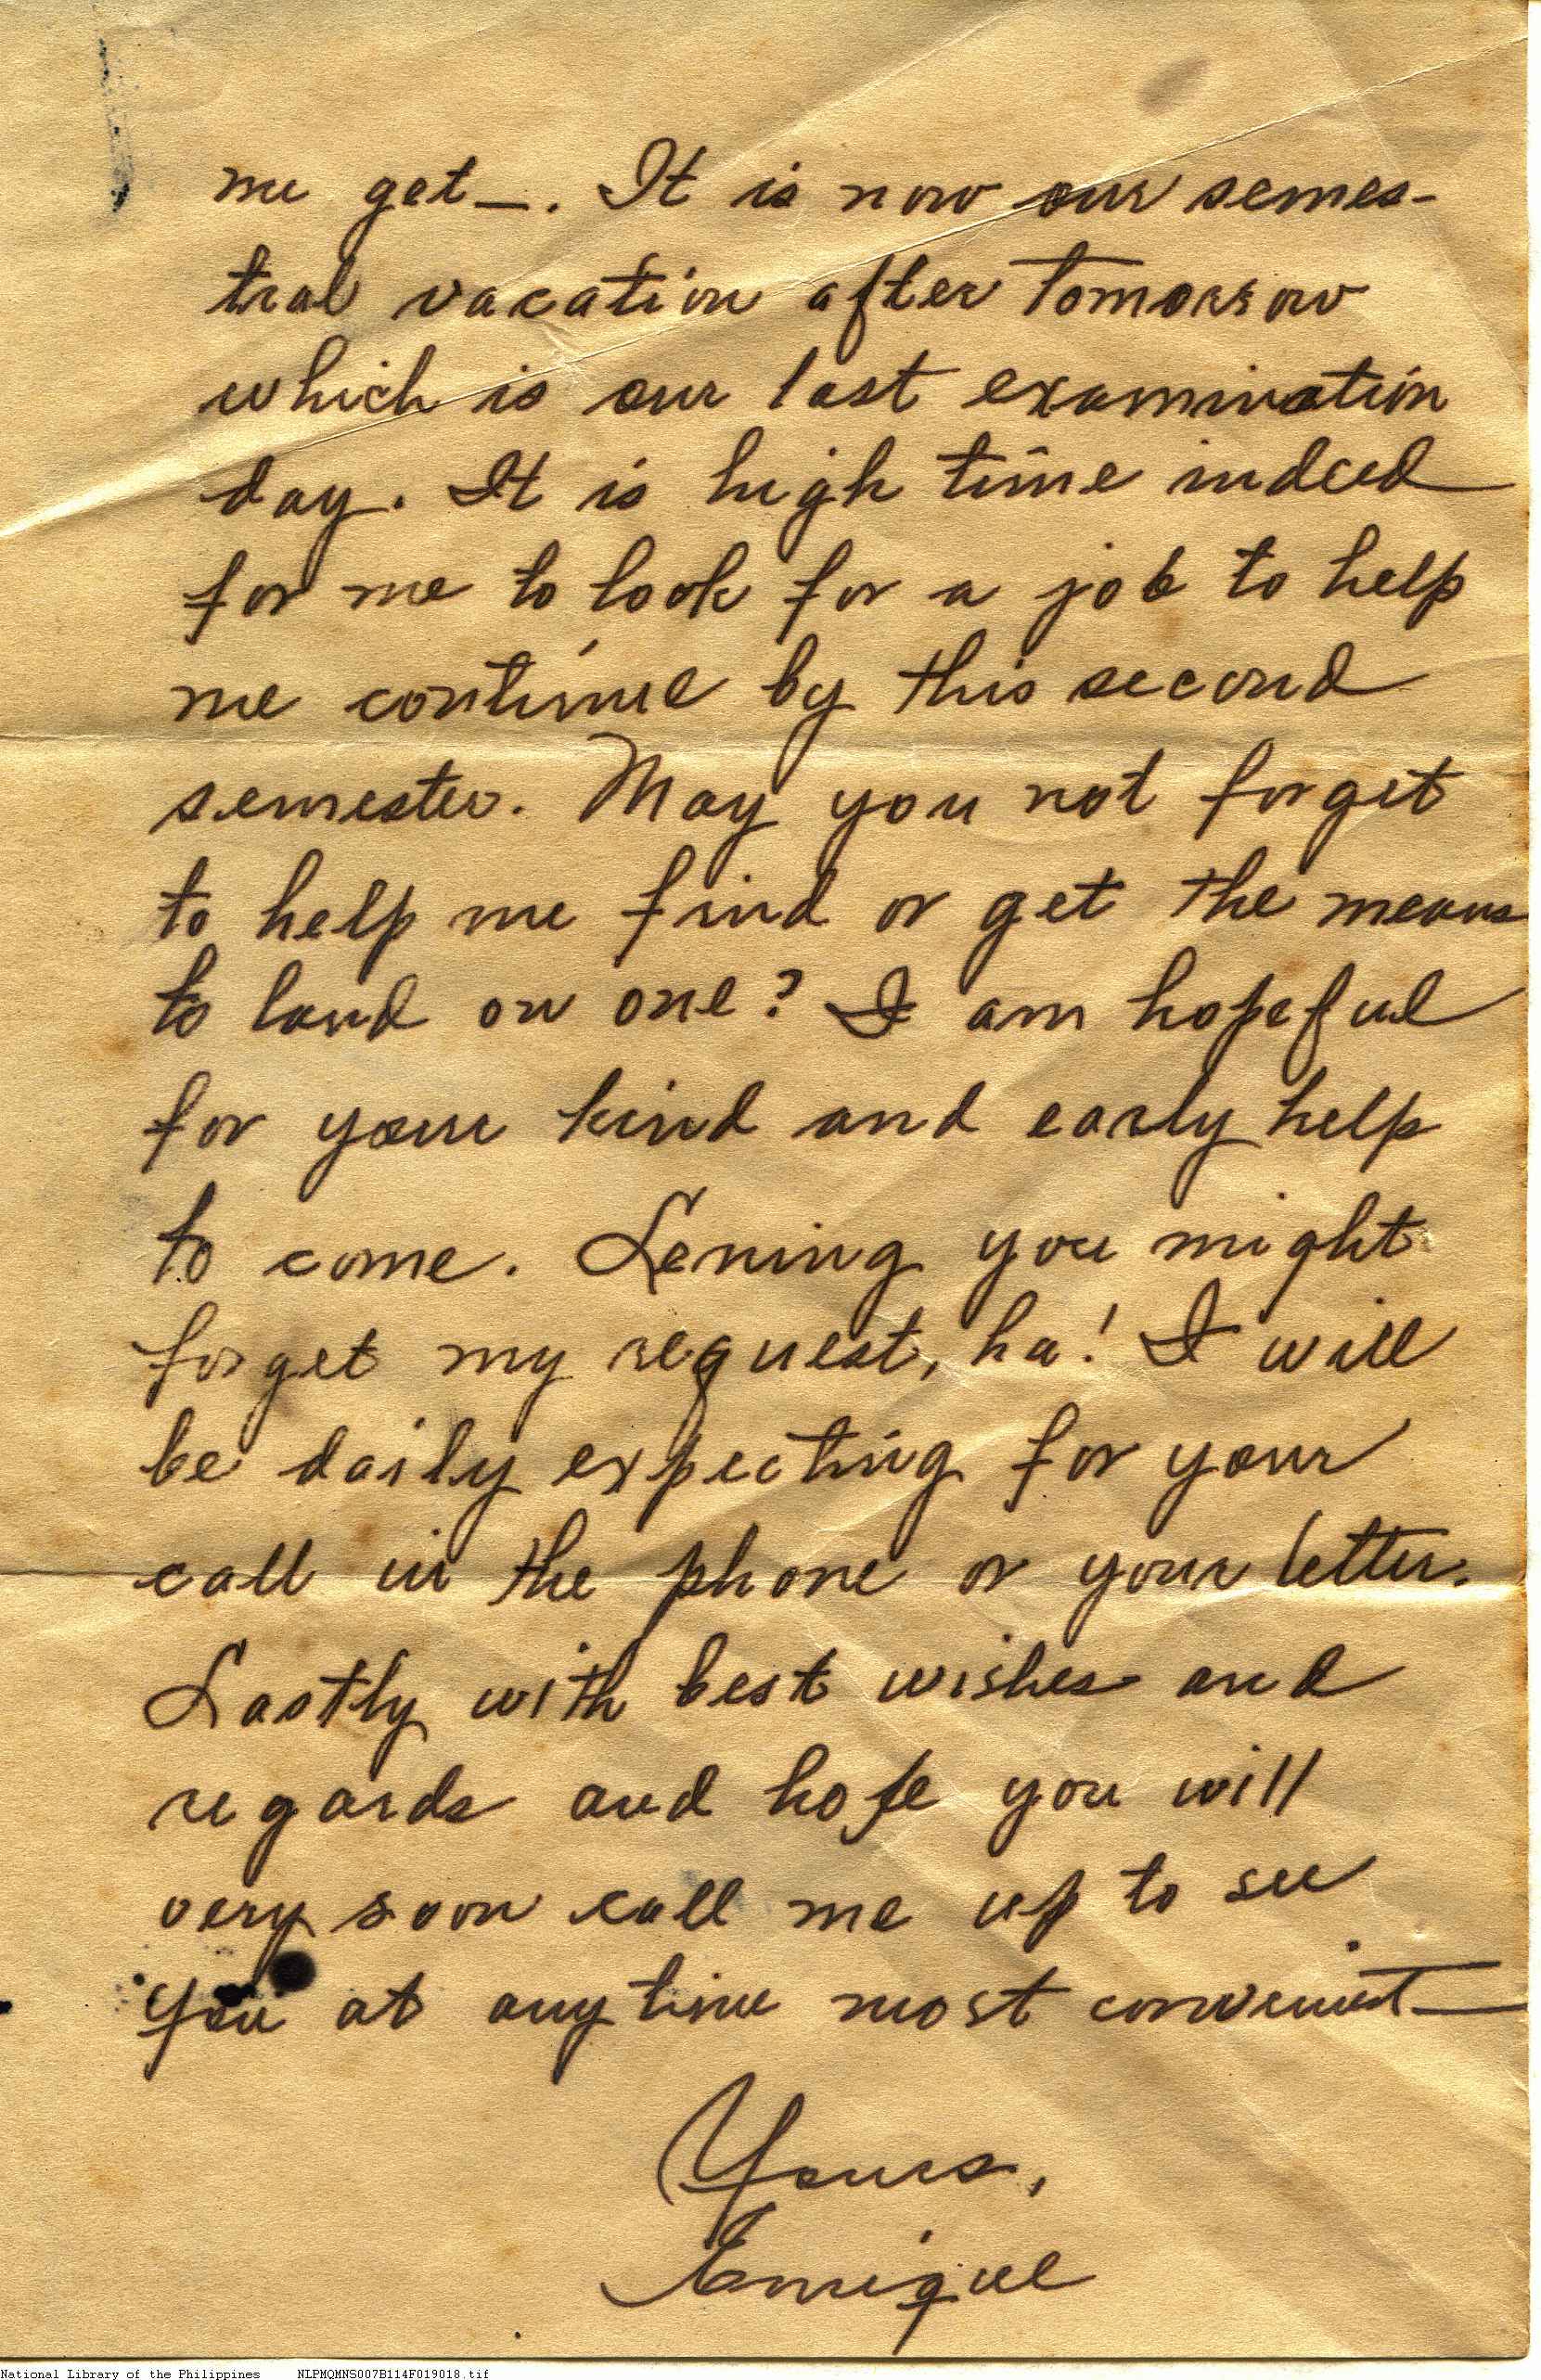 me get_. It is now our semes-
tral vacation after tomorrow
which is our last examination
day. It is high time indeed
for me to look for a job to help
me continue by this second
semester. May you not forget
to help me find or get the means
to land on one? I am hopeful
for your kind and early help
to come. Lening you might
forget my request, ha! I will
be daily expecting for your
call in the phone or your letter.
Lastly with best wishes and
regards and hope you will
very soon call me up to see
you at anytime most convenient
Yours,
Enrique
National Library of the Philippines NLPMQMNS007B114F019018.tif